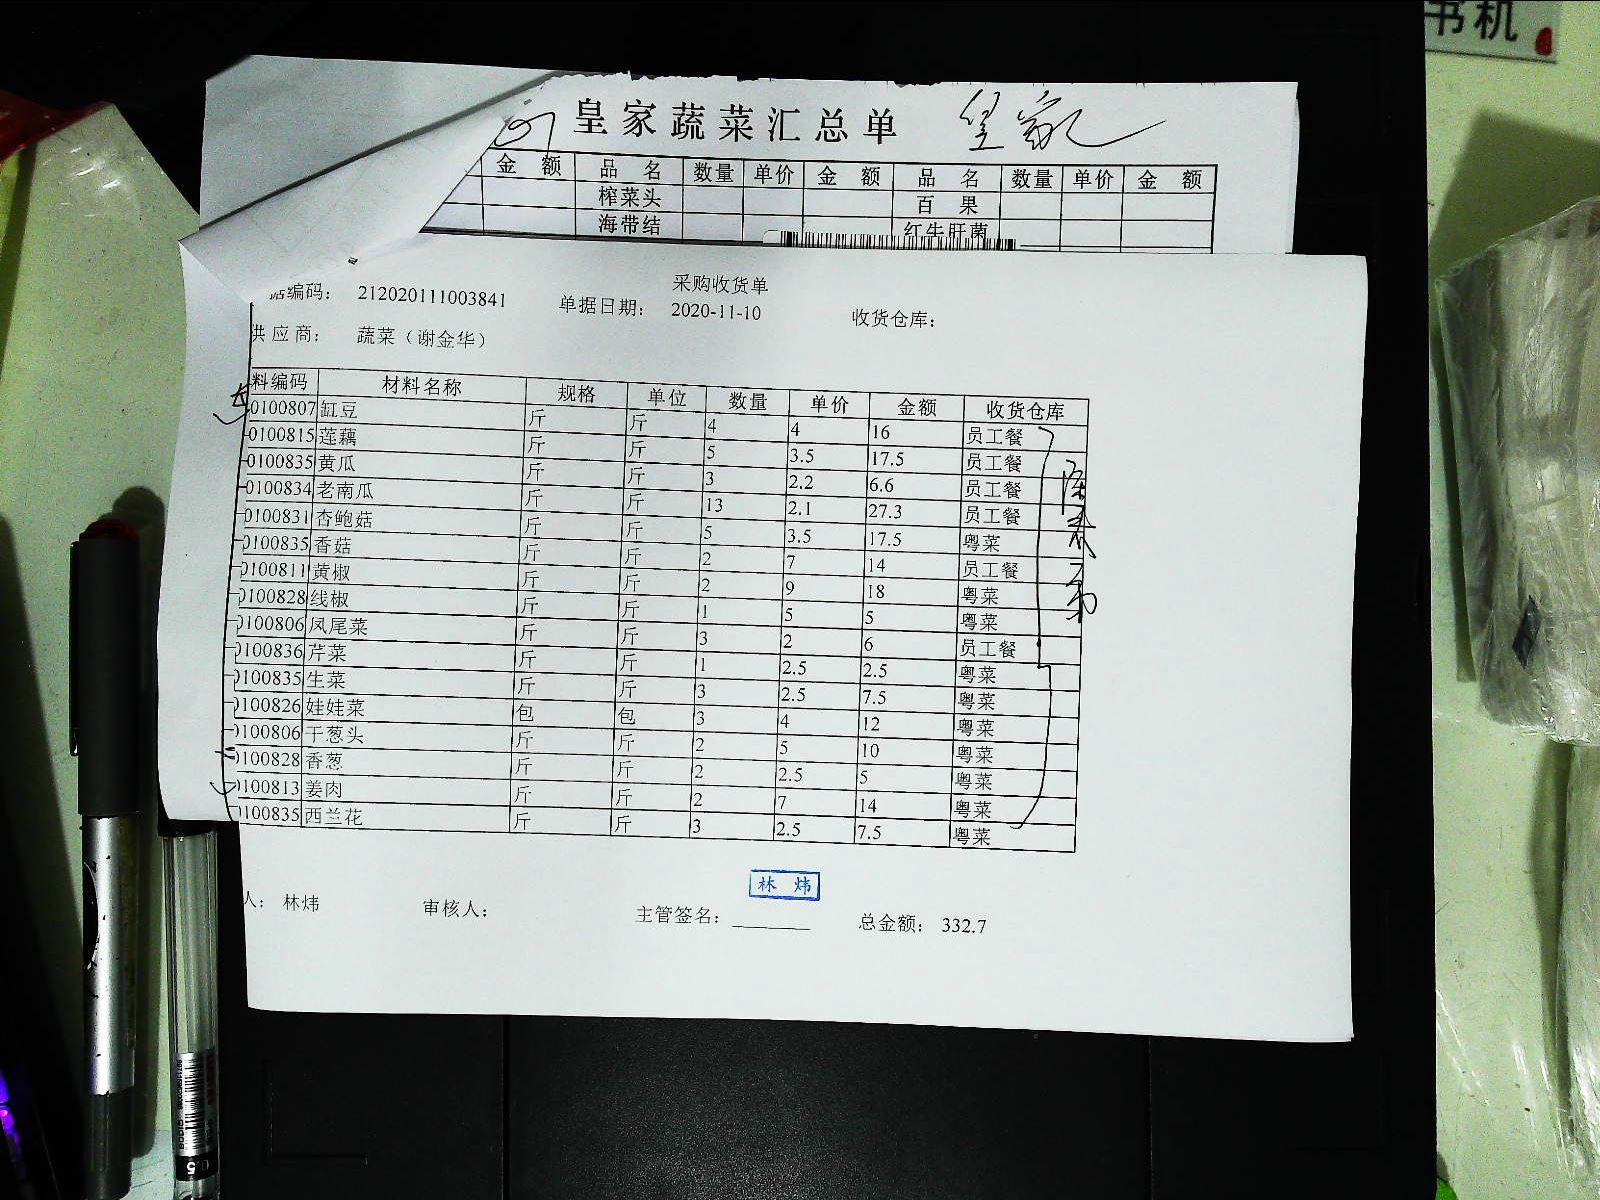 书机
皇家蔬菜汇总单 皇家
金额 品名 数量 单价 金额 品名 数量 单价 金额
榨菜头 百果
海带结 红牛肝菌
采购收货单
据编码： 212020111003841 单据日期： 2020-11-10 收货仓库：
供应商： 蔬菜（谢金华）
料编码 材料名称 规格 单位 数量 单价 金额 收货仓库
0100807 缸豆 斤 斤 4 4 16 员工餐
0100815 莲藕 斤 斤 5 3.5 17.5 员工餐
0100835 黄瓜 斤 斤 3 2.2 6.6 员工餐
0100834 老南瓜 斤 斤 13 2.1 27.3 员工餐
0100831 杏鲍菇 斤 斤 5 3.5 17.5 粤菜
0100835 香菇 斤 斤 2 7 14 员工餐
0100811 黄椒 斤 斤 2 9 18 粤菜
0100828 线椒 斤 斤 1 5 5 粤菜
0100806 凤尾菜 斤 斤 3 2 6 员工餐
0100836 芹菜 斤 斤 1 2.5 2.5 粤菜
0100835 生菜 斤 斤 3 2.5 7.5 粤菜
0100826 娃娃菜 包 包 3 4 12 粤菜
0100806 干葱头 斤 斤 2 5 10 粤菜
0100828 香葱 斤 斤 2 2.5 5 粤菜
0100813 姜肉 斤 斤 2 7 14 粤菜
0100835 西兰花 斤 斤 3 2.5 7.5 粤菜
林炜
人： 林炜 审核人： 主管签名： 总金额： 332.7
0.5